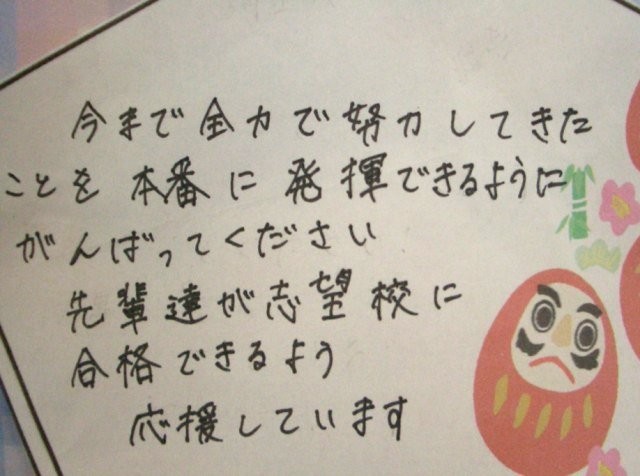 今まで全力で努力してきた
ことを本番に発揮できるように
がんばってください
先輩達が志望校に
合格できるよう
応援しています